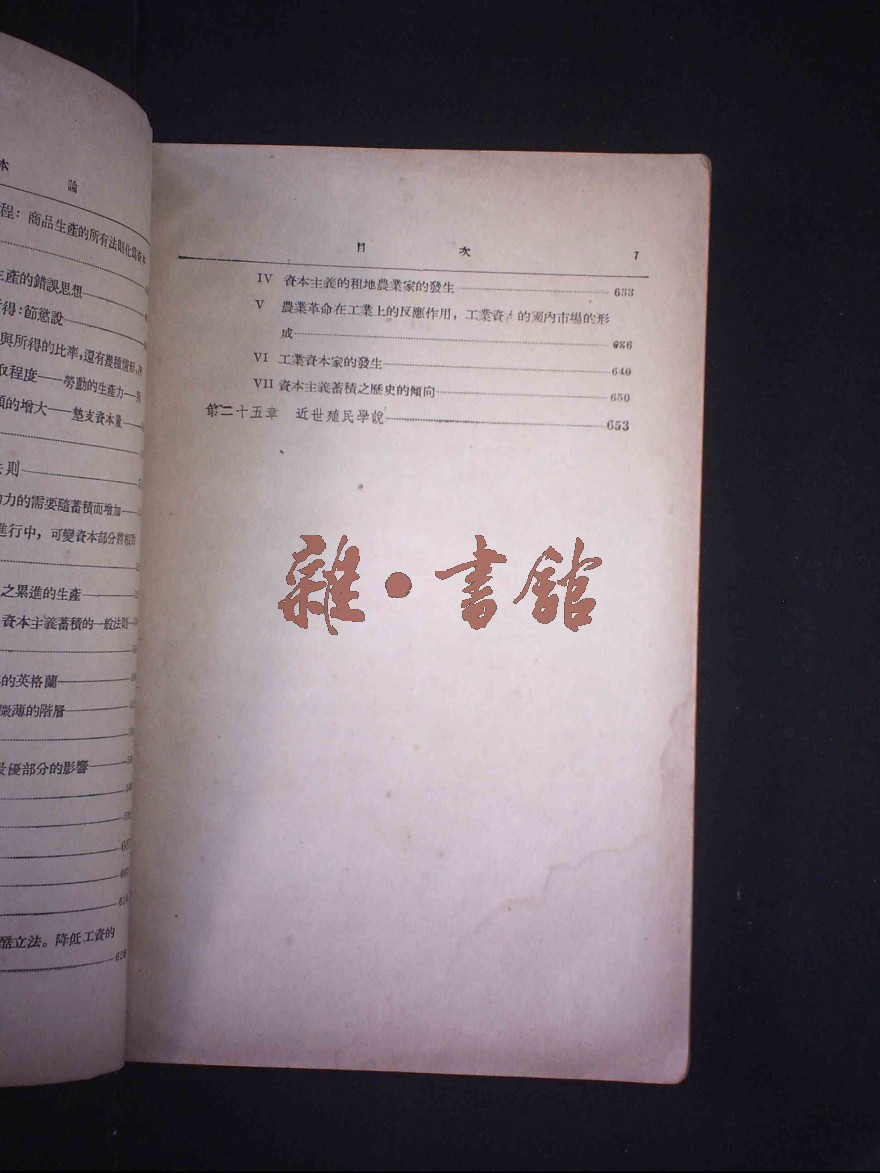 本 論
程：商品生產的所有法則化爲資本
生產的錯誤思想
所得：節慾說
與所得的比率，還有幾種情形，
取程度——勞動的生產力——
額的增大——墊支資本量——
法則
力的需要隨蓄積而增加
進行中，可變資本部分將相對
之累進的生產
資本主義蓄積的一般法則
的英格蘭
微薄的階層
最優部分的影響
酷立法。降低工資的
目 次 7
IV 資本主義的租地農業家的發生 633
V 農業革命在工業上的反應作用，工業資本的國內市場的形
成 636
VI 工業資本家的發生 640
VII 資本主義蓄積之歷史的傾向 650
第二十五章 近世殖民學說 653
雜·書館